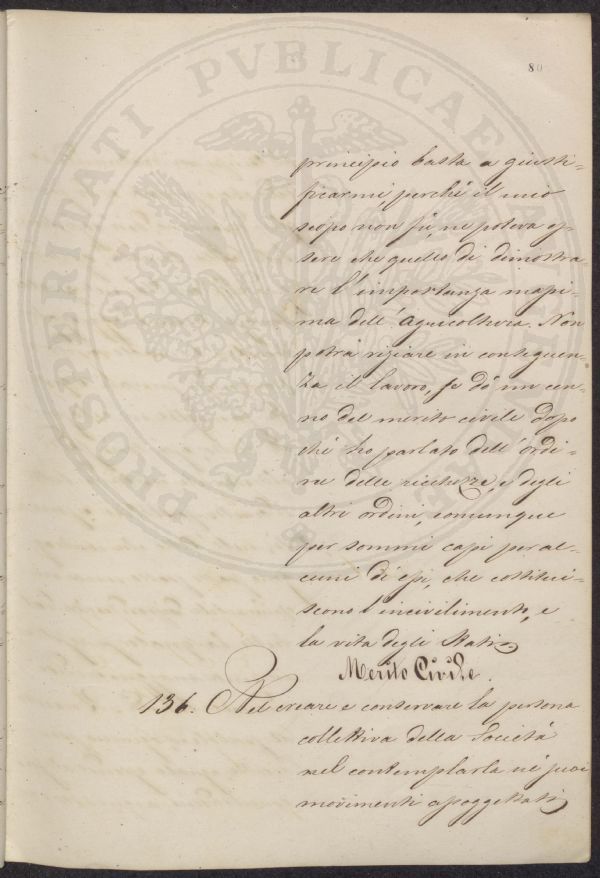 80
PROSPERITATI PVBLICAE
principio basta a giusti-
ficarmi, perchè il mio
scopo non fù, ne poteva es-
sere che quello di dimostra-
re l'importanza massi-
ma dell'Agricoltura. Non
potrà viziare in conseguen-
za il lavoro, se dò un cen-
no del merito civile dopo
chè ho parlato dell'ordi-
ne delle ricchezze, e degli
altri ordini, comunque
per sommi capi per al-
cuni di essi, che costitui-
scono l'incivilimento, e
la vita degli Stati
Merito Civile.
136. Nel creare e conservare la persona
collettiva della Società
nel contemplarla ne' suoi
movimenti apoggettati